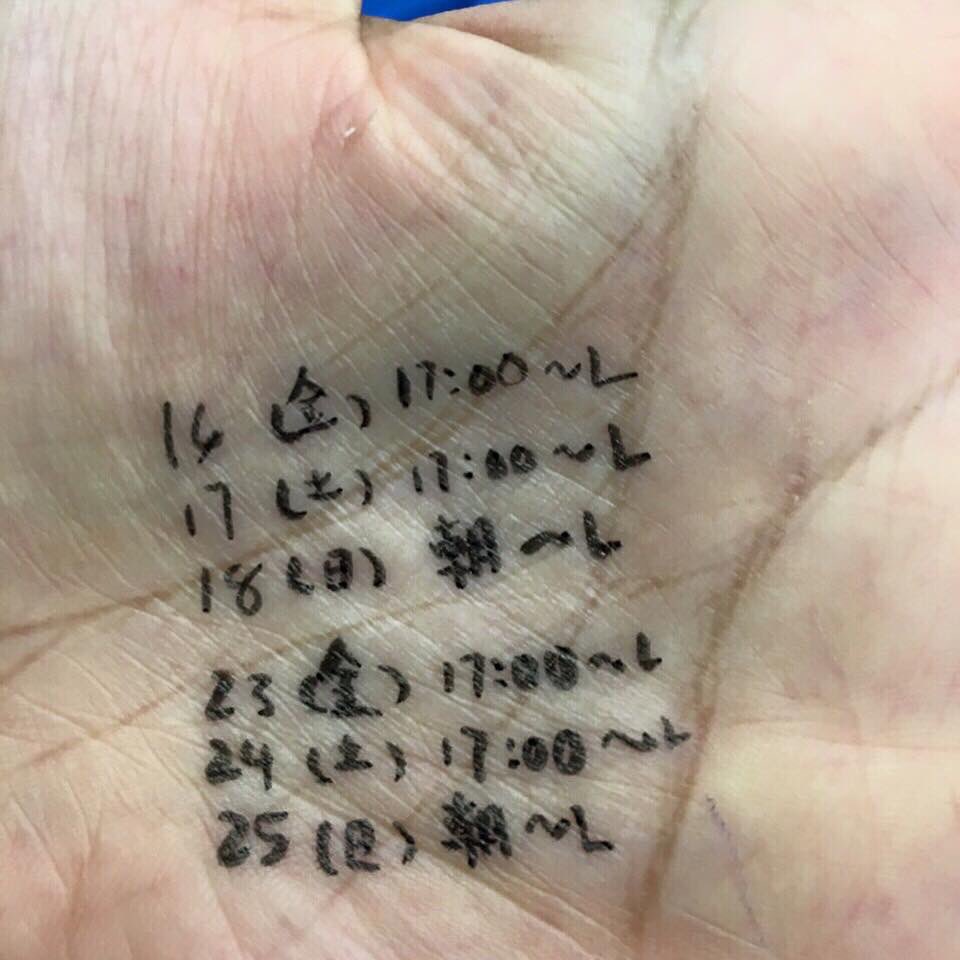 16 (金) 17:00~L
17 (土) 17:00~L
18 (日) 朝~L
23 (金) 17:00~L
24 (土) 17:00~L
25 (日) 朝~L